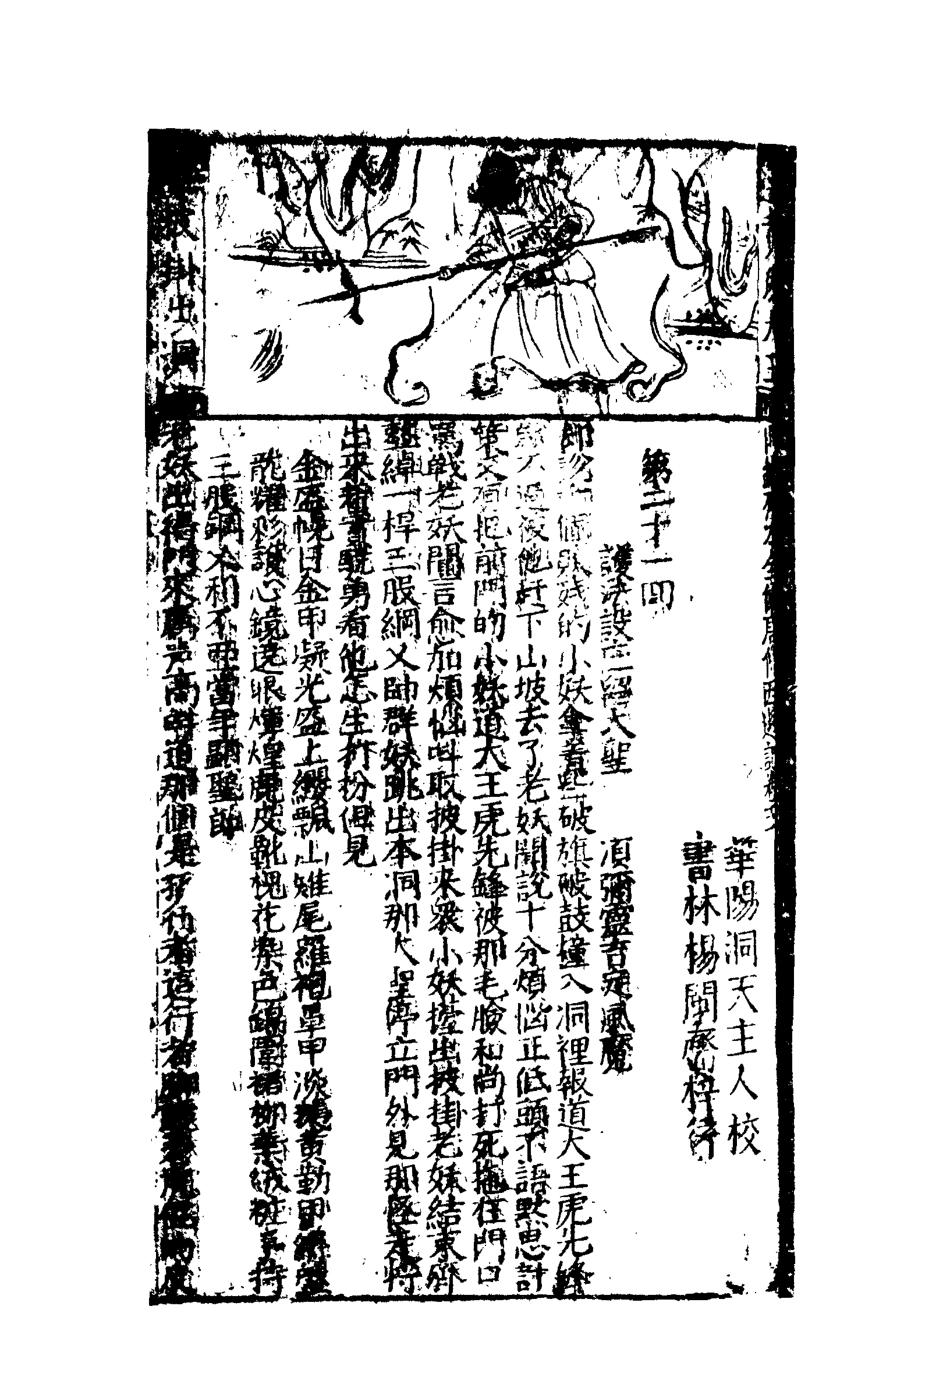 華陽洞天主人校
書林楊閩齋梓行
第二十一回
護法設庄留大聖　須彌靈吉定風魔
卻說那個殘的小妖拿著些破旗破鼓撞入洞裡報道大王虎先鋒
戰不過被他趕下山坡去了老妖聞說十分煩惱正低頭不語默思計
策又有把前門的小妖道大王虎先鋒被那毛臉和尚打死拖在門口
罵戰老妖聞言愈加煩惱叫取披掛來眾小妖擡出披掛老妖結束齊
整綽一桿三股鋼叉帥群妖跳出本洞那大聖停立門外見那怪走將
出來著實驍勇看他怎生打扮但見
金盔幌日金甲凝光盔上纓飄山雉尾羅袍罩甲淡鵝黃勒甲絛
龍耀彩護心鏡遶眼輝煌鹿皮靴槐花染色錦圍裙柳葉絨粧手持
三股鋼叉利不亞當年顯聖郎
老妖出得門來厲声高叫道那個是孫行者這行者腳 虎怪的皮
披掛出洞